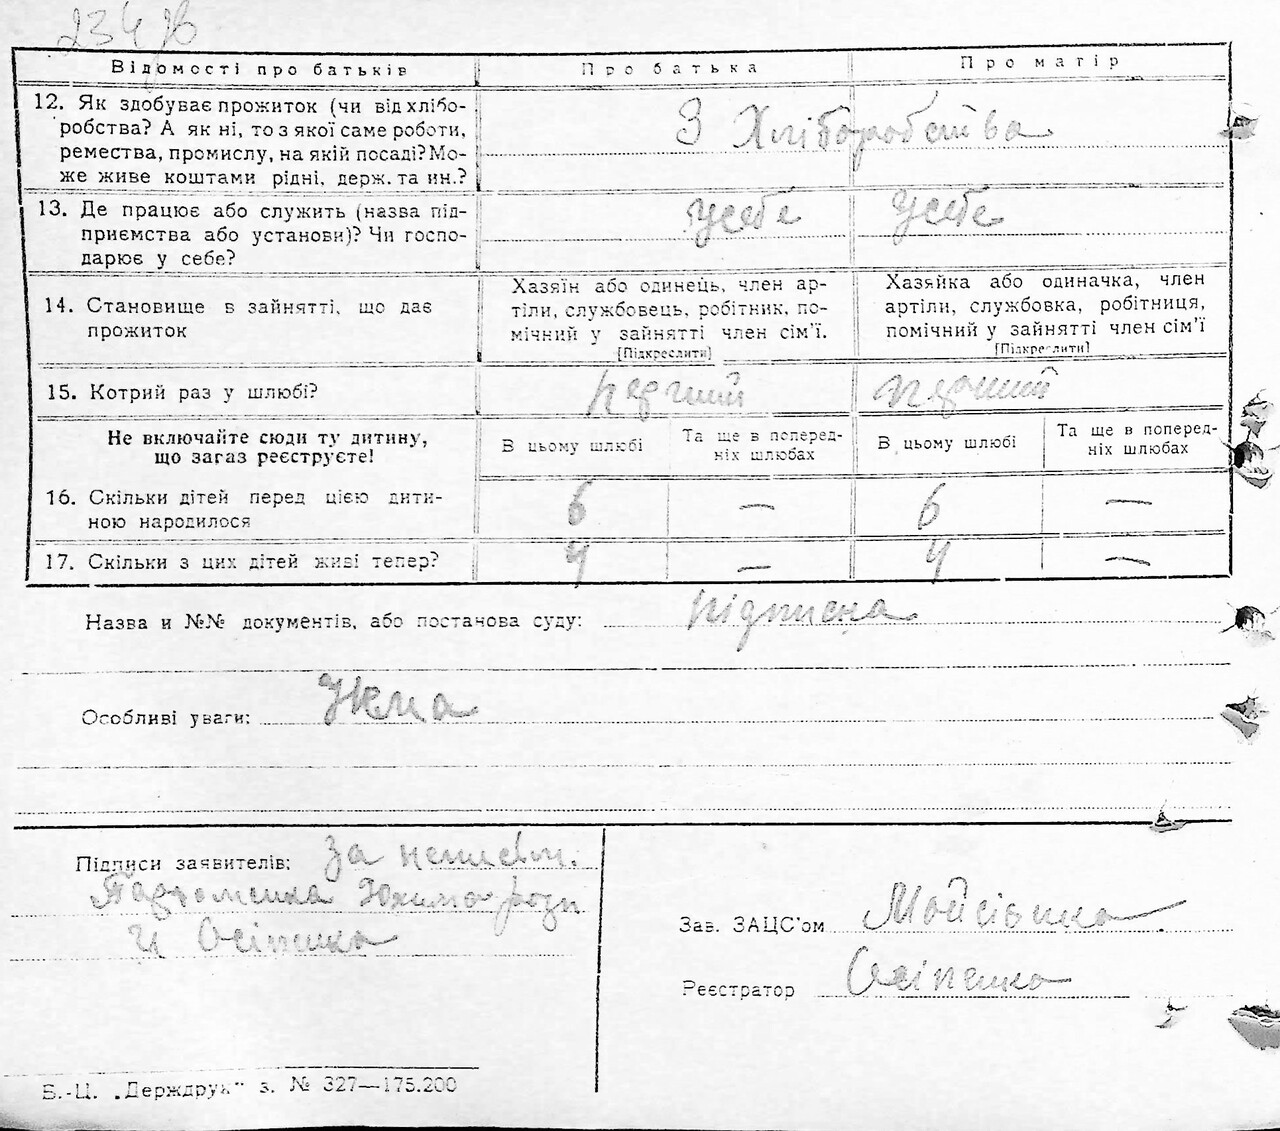 234 зв
Відомості про батьків Про батька Про матір
12. Як здобуває прожиток (чи від хлібо-
робства? А як ні, то з якої саме роботи,
ремества, промислу, на якій посаді? Мо-
же живе коштами рідні, держ. та ин.?
З Хліборобства
13. Де працює або служить (назва під-
приємства або установи)? Чи госпо-
дарює у себе?
У себе У себе
14. Становище в зайнятті, що дає
прожиток
Хазяїн або одинець, член ар-
тіли, службовець, робітник, по-
мічний у зайнятті член сім'ї.
[Підкреслити]
Хазяйка або одиначка, член
артіли, службовка, робітниця,
помічний у зайнятті член сім'ї
[Підкреслити]
15. Котрий раз у шлюбі? перший перший
Не включайте сюди ту дитину,
що зараз реєструєте!
В цьому шлюбі
Та ще в поперед-
ніх шлюбах
В цьому шлюбі
Та ще в поперед-
ніх шлюбах
16. Скільки дітей перед цією дити-
ною народилося
6 — 6 —
17. Скільки з цих дітей живі тепер? 4 — 4 —
Назва и №№ документів, або постанова суду: підписка
Особливі уваги:
Підписи заявителів: За неписьм.
Пархоменка Юхима розп
и Осіпенко
Зав. ЗАЦС'ом
Реєстратор Осіпенко
Б.-Ц. „Держдрук" з. № 327—175.200